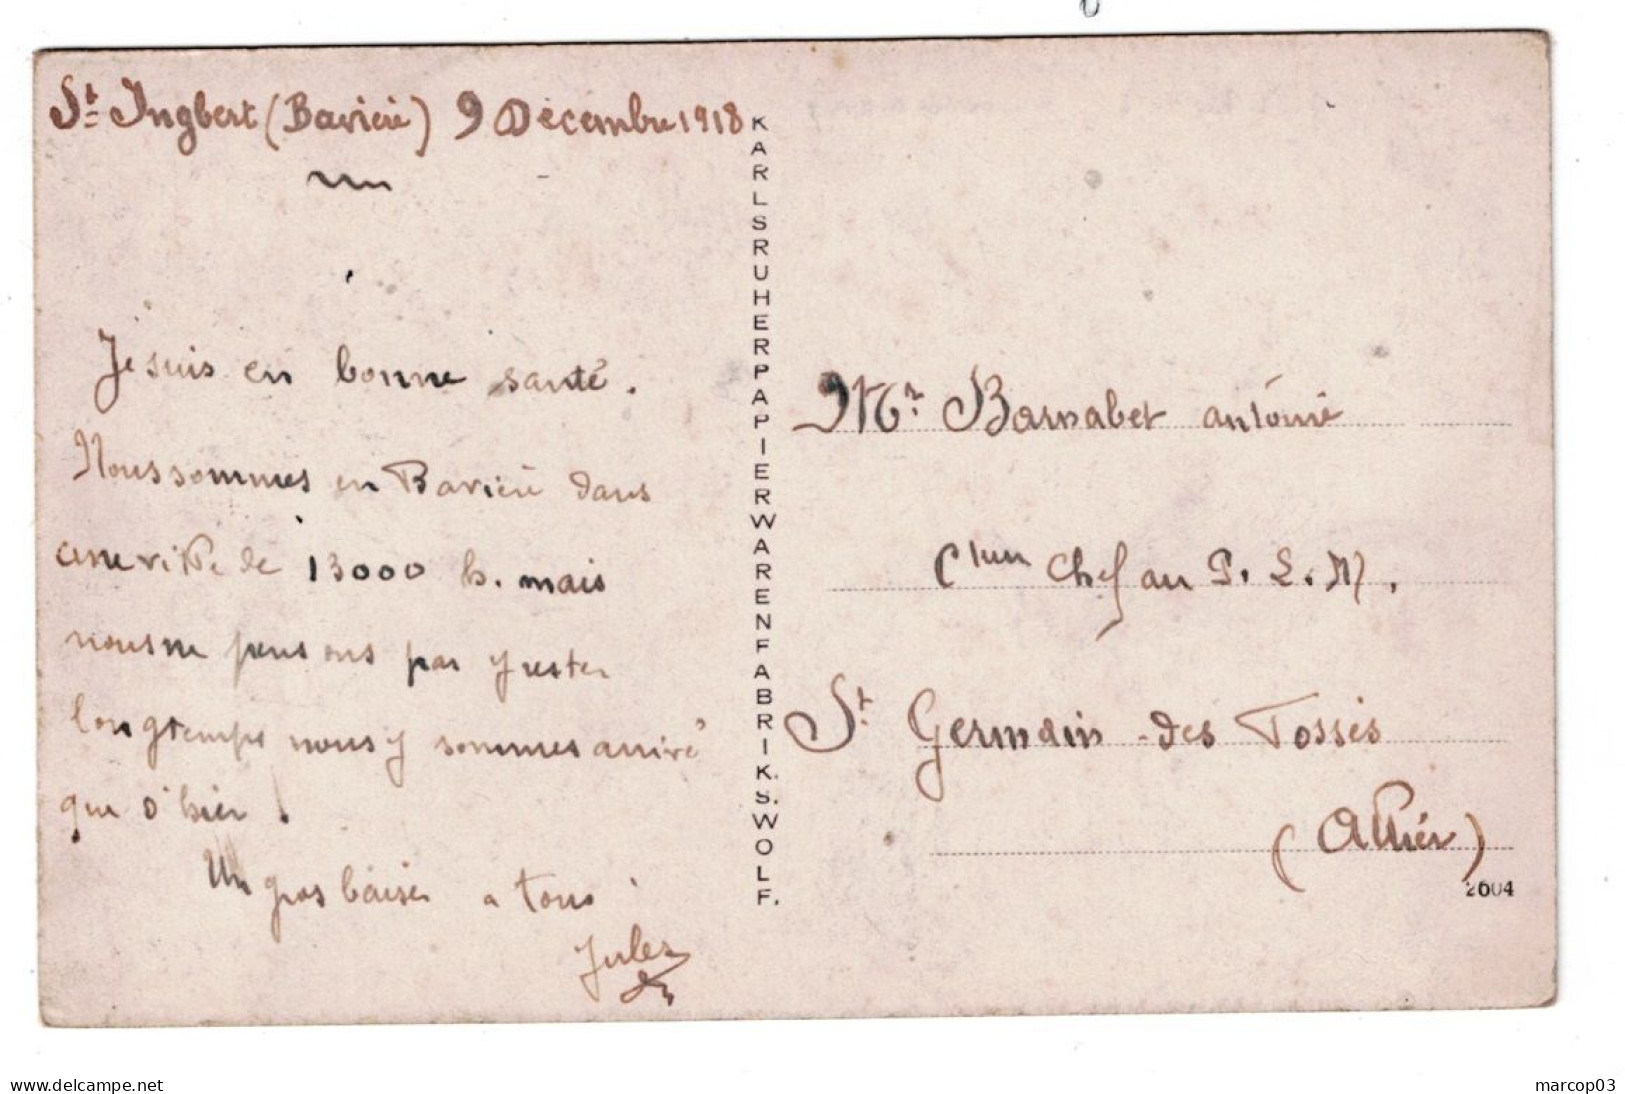 St Ingbert (Bavière) 9 Décembre 1918
Je suis en bonne santé.
Nous sommes en Bavière dans
une ville de 13000 h. mais
nous ne pensons pas y rester
longtemps nous y sommes arrivé
que d'hier.
Un gros baiser a tous
Jules
KARLSRUHER PAPIERWARENFABRIK. S. WOLF.
Mr. Barnabet antoine
Chef au P. L. M.
St. Germain des Fossés
(Allier)
2604
www.delcampe.net
marcop03